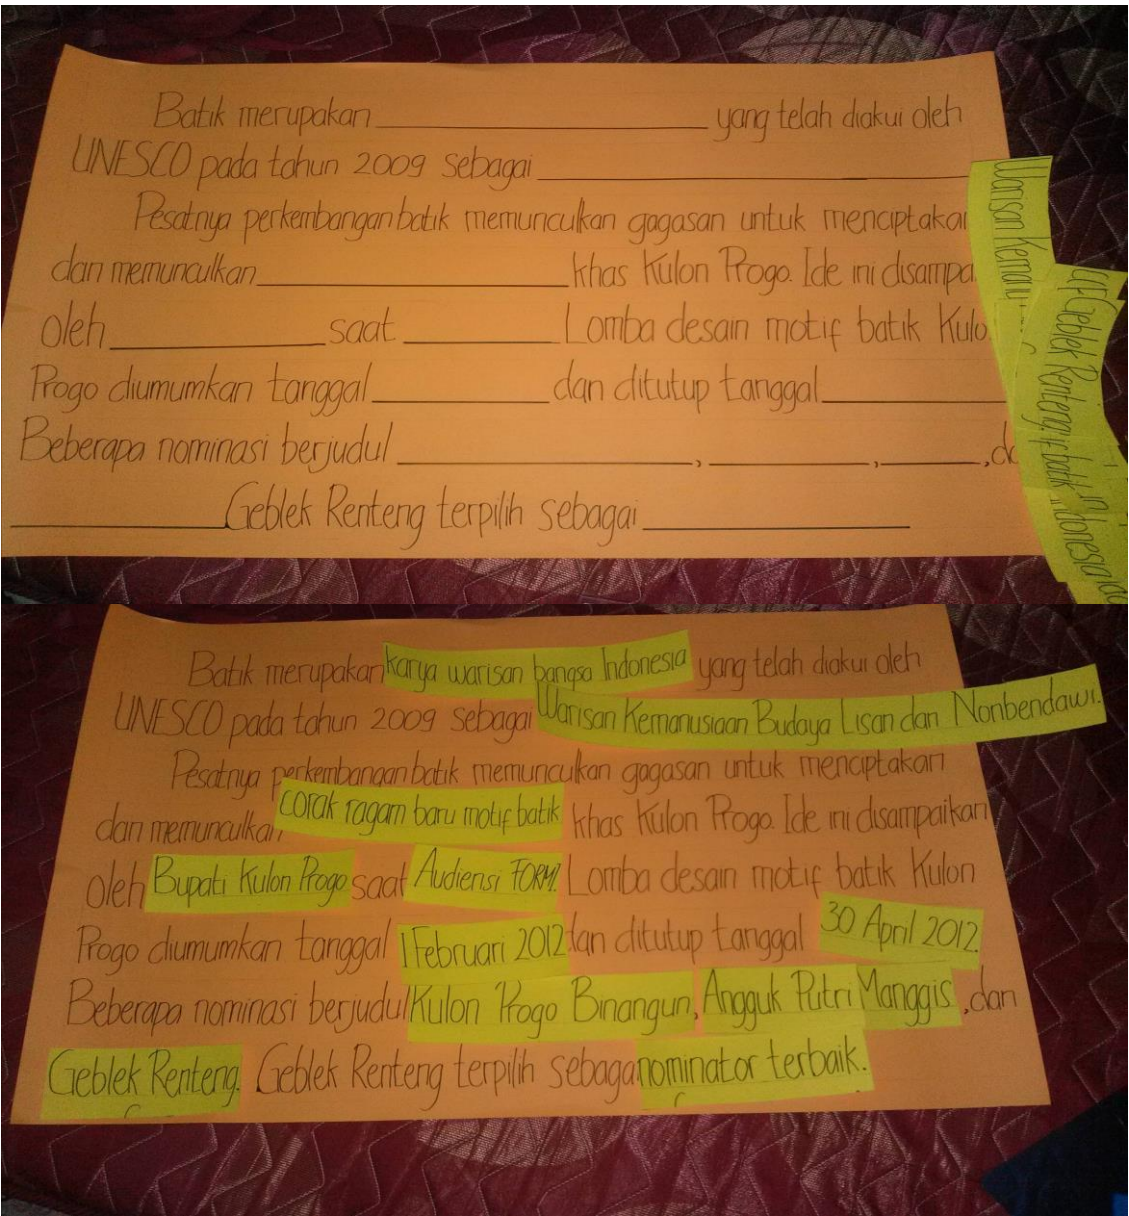 Batik merupakan ____________ yang telah diakui oleh
UNESCO pada tahun 2009 sebagai ____________
Pesatnya perkembangan batik memunculkan gagasan untuk menciptakan
dan memunculkan ____________ khas Kulon Progo. Ide ini disampa
oleh ____________ saat ____________ Lomba desain motif batik Kulo
Progo diumumkan tanggal ____________ dan ditutup tanggal ____________
Beberapa nominasi berjudul ____________, ____________, ____________, da
____________ Geblek Renteng terpilih sebagai ____________
Warisan Keman
Geblek Renteng.
if batik
in
donesia
Batik merupakan karya warisan bangsa Indonesia yang telah diakui oleh
UNESCO pada tahun 2009 sebagai Warisan Kemanusiaan Budaya Lisan dan Nonbendawi.
Pesatnya perkembangan batik memunculkan gagasan untuk menciptakan
dan memunculkan corak ragam baru motif batik khas Kulon Progo. Ide ini disampaikan
oleh Bupati Kulon Progo saat Audiensi FORMI. Lomba desain motif batik Kulon
Progo diumumkan tanggal 1 Februari 2012 dan ditutup tanggal 30 April 2012.
Beberapa nominasi berjudul Kulon Progo Binangun, Angguk Putri Manggis, dan
Geblek Renteng. Geblek Renteng terpilih sebagai nominator terbaik.